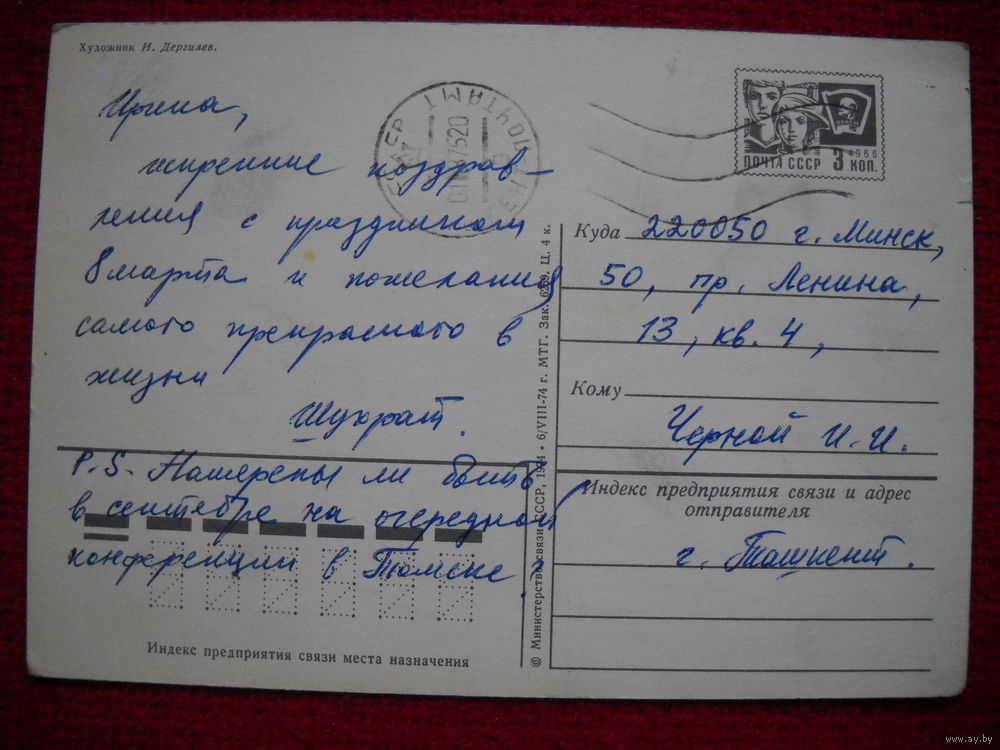 Художник И. Дергилев.
Ирина,
искренние поздрав-
ления с праздником
8 марта и пожелания
самого прекрасного в
жизни
Шухрат.
P.S. Намерены ли быть
в сентябре на очередной
конференции в Томске?
Индекс предприятия связи места назначения
© Министерство связи СССР, 1974 • 6/VIII-74 г. МТГ. Зак. 6269. Ц. 4 к.
ПОЧТА СССР 3 КОП.
1966
ПОЧТАМТ
Куда 220050 г. Минск,
50, пр. Ленина,
13, кв. 4,
Кому
Черной И.И.
Индекс предприятия связи и адрес
отправителя
г. Ташкент.
www.ay.by